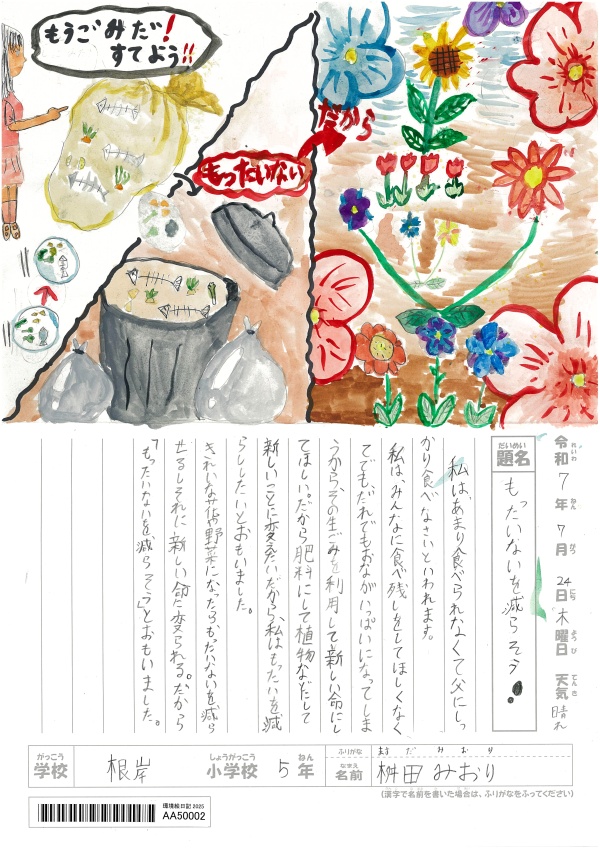 もうごみだ!
すてよう!!
もったいない
だから
令和7年7月24日木曜日 天気 晴れ
れいわ ねん がつ にち ようび てんき
だいめい
題名
もったいないを減らそう!
私は、あまり食べられなくて父にしっ
かり食べなさいといわれます。
私は、みんなに食べ残しをしてほしくなく
てでも、だれでもおなかいっぱいになってしま
うから、その生ごみを利用して新しい命にし
てほしい。だから肥料にして植物などだして
新しいことに変えたいだから、私はもったいを減
らししたいとおもいました。
きれいな花や野菜になったらもったいないを減ら
せるしそれに新しい命に変られる。だから
「もったいないを、減らそう」とおもいました。
がっこう
学校
根岸
しょうがっこう
小学校
5
ねん
年
ふりがな
ますだ みおり
なまえ
名前
桝田 みおり
(漢字で名前を書いた場合は、ふりがなをふってください)
環境絵日記 2025
AA50002